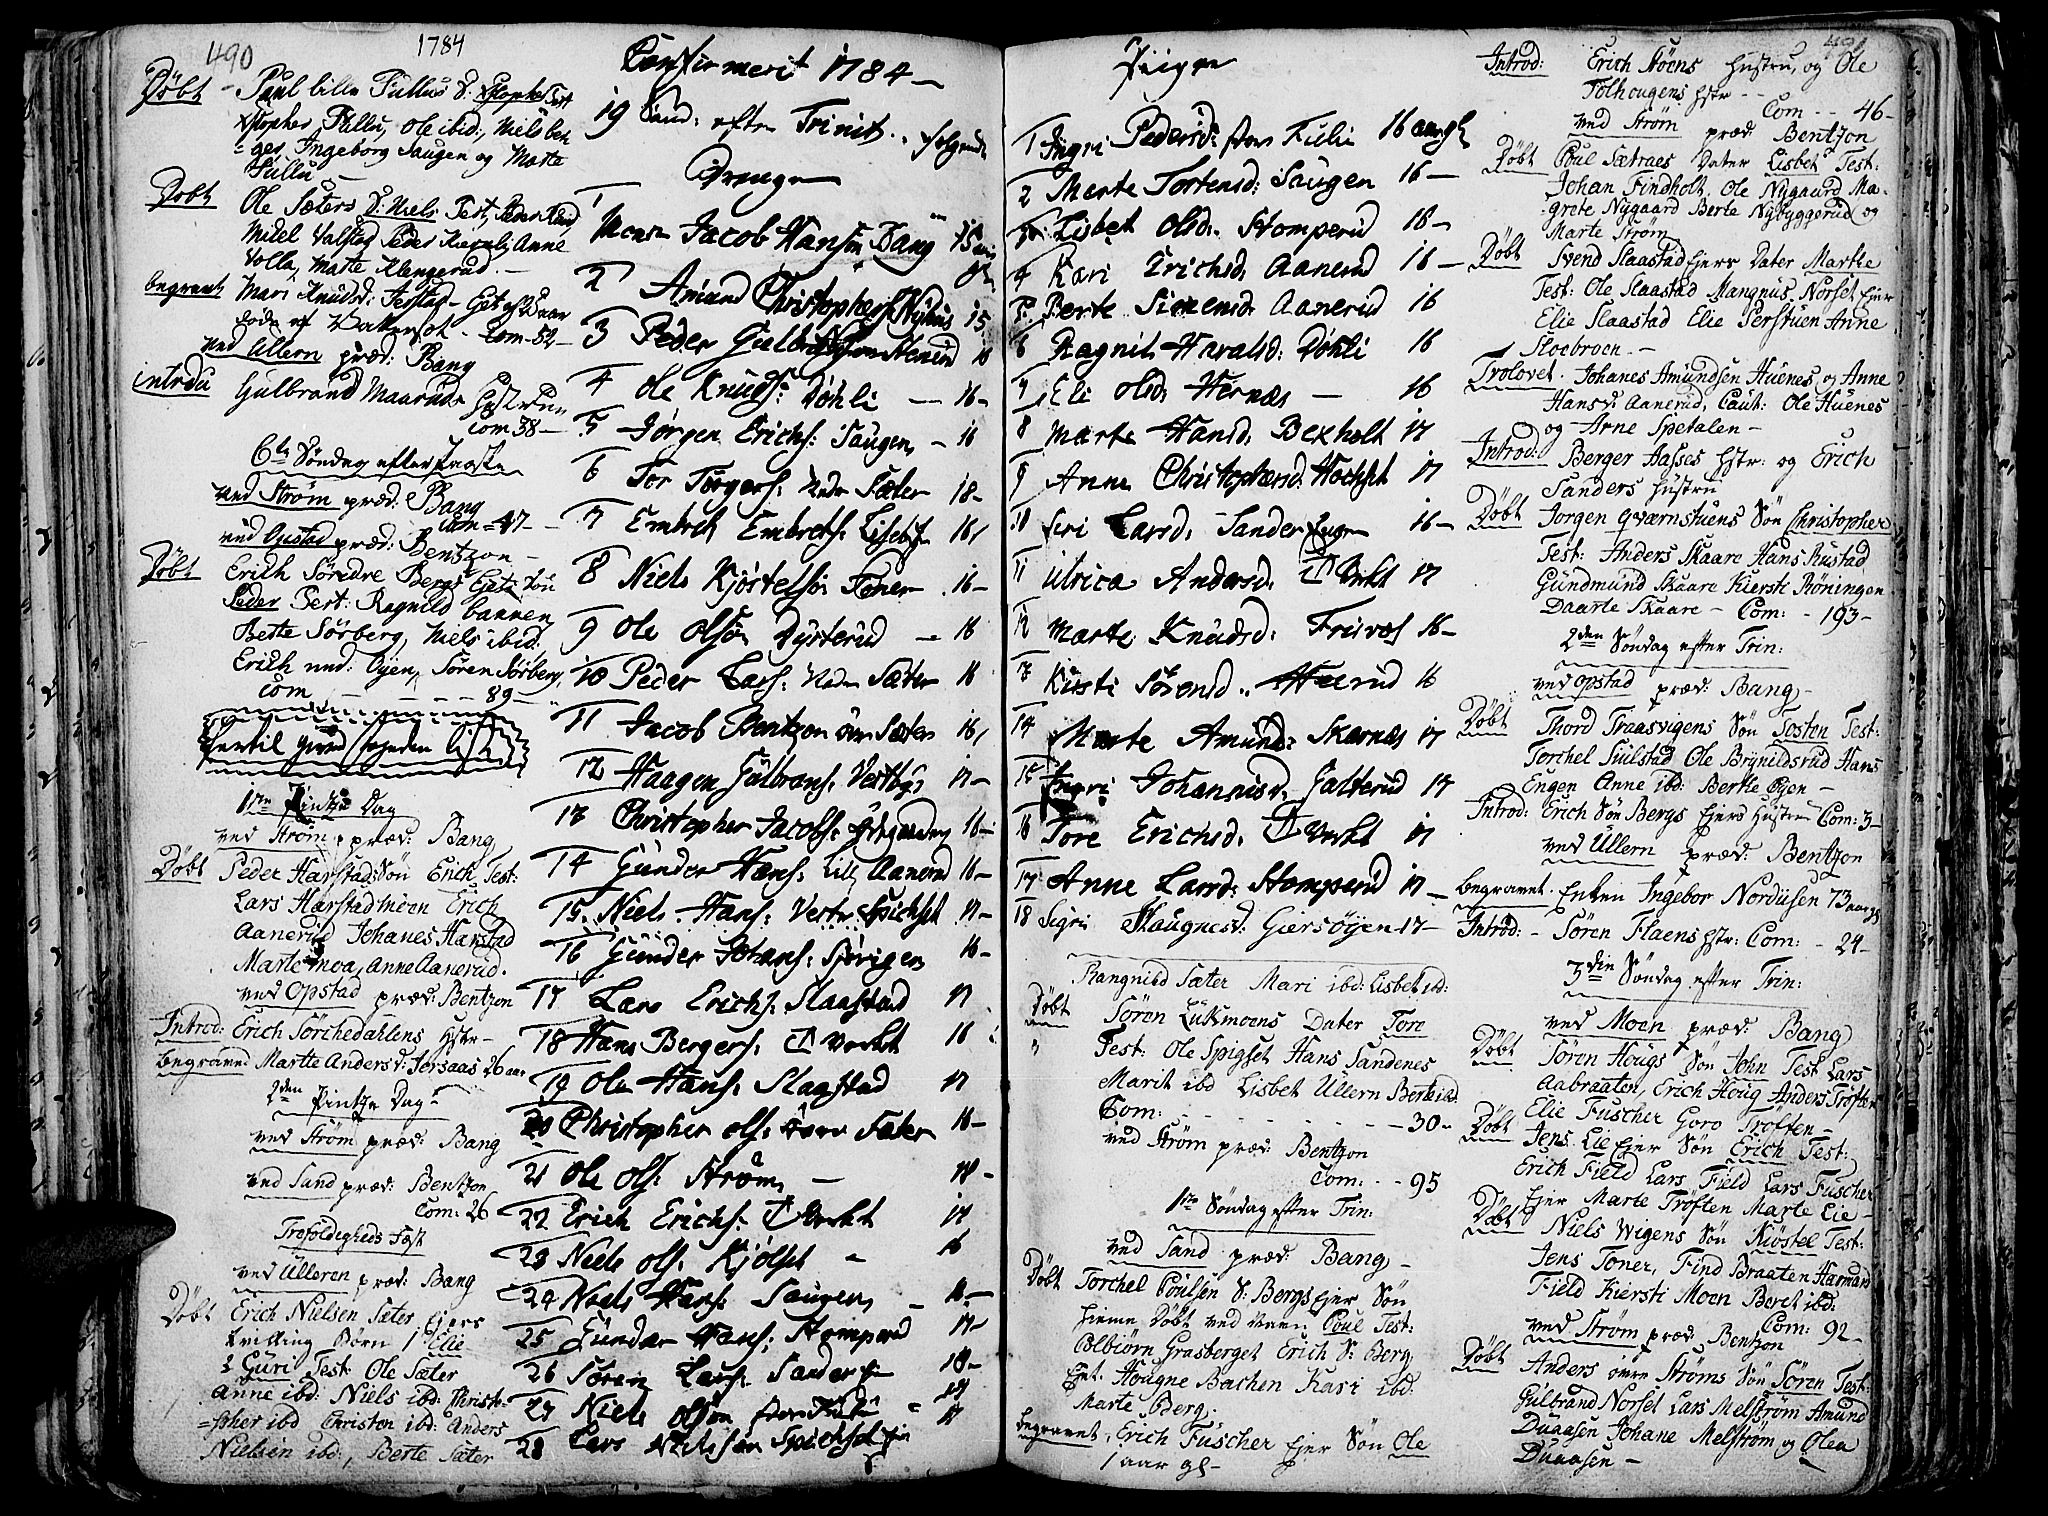 490
1784
Døbt Paul lille Fullus S: Xstopher Test
Xstopher Fullu, Ole ibid:, Niels ben
=ges Ingeborg Saugen og Marte
Fullu
Døbt Ole Sæters S: Niels Test, Peder ibid,
Mikel Valstad Peder ibid, Anne
Volla, Matte Klengerud. -
begravet Mari Knudsd: Jerstad -
Com - 52 -
ved Ullern præd: Bang
introdu Gulbrand Maaruds Hustru
Com 38 -
6te Søndag efter Paaske
ved Strøm præd: Bang
Com = 47 -
ved Opstad præd: Bentzon -
Døbt Erich Søndre Bergs Søn
Peder Test: Ragnild
Berte Sørberg, Niels ibid:
Erich ned: Øyen, Søren Sørberg,
Com - - - 89 -
1ste Pintze Dag
ved Strøm præd: Bang
Døbt Peder Harstad Søn Erich Test:
Lars Harstadmoen Erich
Aanerud Johanes Harstad
Marte moa, Anne Aanerud.
ved Opstad præd: Bentzon
Introd: Erich Sørchedahlens Hstr -
Begravet Martte Andersd: Jersaas 26 aar
2den Pintze Dag
ved Strøm præd: Bang
ved Sand præd: Bentzon
Com: 26
Trefoldigheds Fest
ved Ulleren præd: Bang
Døbt Erich Nielsen Sæter Ejers
tvilling Børn 1 Elie
2 Guri Test: Ole Sæter
Anne ibd: Niels ibd: Christo-
=pher ibd Christen ibd: Anders
Nielsen ibd:, Berte Sæter
Confirmerit 1784 -
19 Sønd: efter Trinit. følgende
Drenge
1 Jacob Hansøn Bang 15
2 Amund Christophers: Nyhus 15
3 Peder Gulbrandsøn 16
4 Ole Knuds: Døhli - 16 -
5 Jørgen Erichs: Saugen - 16
6 Tor Torgers: Nedr Sæter 18 -
7 Embret Embrets: 16
8 Niels Kjøstelsøn Toner 16 -
9 Ole Olsøn Dysterud - 16
10 Peder Lars: Nedr Sæter 16
11 Jacob Bentzon øvr Sæter 16
12 Haagen Gulbrans: Vestby 17 -
13 Christopher Jacobs: 16 -
14 Gunder Hans: Lill Aanerud 16 -
15. Niels Hans: Vestr Spichset 17 -
16 Gunder Johans: 16 -
17 Lars Erichs: Slaastad 17
18 Hans Bergers: Verket 16
19 Ole Hans: Slaastad 17
20 Christopher Ols: Sæter 16 -
21 Ole Ols: Strøm - 18 -
22 Erich Erichs: Verket 17
23 Niels Ols: Kjølset - 16
24 Niels Hans: Saugen - 16 -
25 Gunder Hans: Stomperud 17 -
26 Søren Lars: Sander 18 -
27 Niels Olsøn 17
28 Lars Nielsøn Spichset 17
Piiger
1 Ingri Pedersd: stor Fulli 16 aar gl
2 Marte Tostensd: Saugen 16 -
3 Lisbet Olsd: Stomperud 18 -
4 Kari Erichsd. Aanerud 16 -
5 Berte Simensd: Aanerud 16
6 Ragnil Haralsd: Døhli 16
7 Eli Olsd: Hernæs - 16
8 Marte Hansd. Bexholt 17
9 Anne Christophersd: Hochset 17
10 Siri Larsd. Sander 16 -
11 Ulrica Andersd. Verket 17
12 Marte Knudsd: 16 -
13 Kirsti Sørensd. 16
14 Marte Amunds: Skarnæs 17
15 Ingri Johannisd. Galterud 17
16 Tore Erichsd. Verket 17
17 Anne Larsd: Stomperud 17 -
18 Sigri Haugnesd: Giersøyen 17 -
Rangnild Sæter Mari ibd: Lisbet ibd:
Døbt Søren Lukmoens Dater Tore
Test: Ole Spigset Hans Sandenes
Marit ibd Lisbet Ullern Berte ibd
Com: - - - - - - 30 -
ved Strøm præd: Bentzon
Com: - - 95
1ste Søndag efter Trin:
ved Sand præd: Bang -
Døbt Torchel Poulsen S: Bergs Ejer Søn
hieme Døbt ved navn Poul Test:
Colbiørn Grasberget Erich S: Berg
Ejer. Hougne Bachen Kari ibd:
Marte Berg.
Begravet, Erich Fuscher Ejer Søn Ole
1 aar gl -
491
Introd: Erich Støens Hustru, og Ole
Tolhougens hstr - -
Com - - 46 -
ved Strøm præd: Bentzon
Døbt Poul Sætraes Dater Lisbet Test:
Johan Findholt, Ole Nygaard Ma-
grete Nygaard Berte Nybyggerud og
Marte Strøm
Døbt Svend Slaastad Ejers Dater Marthe
Test: Ole Slaastad Mangnus Norset Ejer
Elie Slaastad Elie Perstuen Anne
Sloebroen. -
Trolovet. Johanes Amundsen Huenes og Anne
Hansd: Aanerud, Caut: Ole Huenes
og Arne Spetalen -
Introd: Berger Hasses Hstr: og Erich
Sanders Hustru
Døbt Jorgen Qværnstuens Søn Christopher
Test: Anders Skaare Hans Rustad
Gundmund Skaare Kiersti Røningen
Daarte Skaare - Com: - 193 -
2den Søndag efter Trin:
ved Opstad præd: Bang -
Døbt Thord Traasvigens Søn Tosten Test:
Torchel Siulstad Ole Brynildsrud Hans
Engen Anne ibd: Berthe Øyen -
Introd: Erich Søn Bergs Ejers Hustru Com: 3 -
ved Ullern præd: Bentzon
Begravet. Enken Ingebor Nordusen 73 aar gl
Introd: - Søren Flaens Hstr: Com: - 24 -
3die Søndag efter Trin:
ved Moen præd: Bang
Døbt Søren Hougs Søn John Test Lars
Aabraaten, Erich Houg Anders Trøften
Elie Fuscher Goro Trøften -
Døbt Jens Lie Ejer Søn Erich Test:
Erich Field Lars Field Lars Fuscher
Ejer Marte Trøften Marte Lie -
Døbt Niels Wigens Søn Kiøstel Test:
Jens Toner, Find Braaten Harman
Field Kiersti Moen Beret ibd:
Com: 92 -
ved Strøm præd: Bentzon
Døbt Anders øvre Strøms Søn Søren Test:
Gulbrand Norset Lars Melstrøm Amund
Duaasen Johane Melstrøm og Olea
Duaasen -